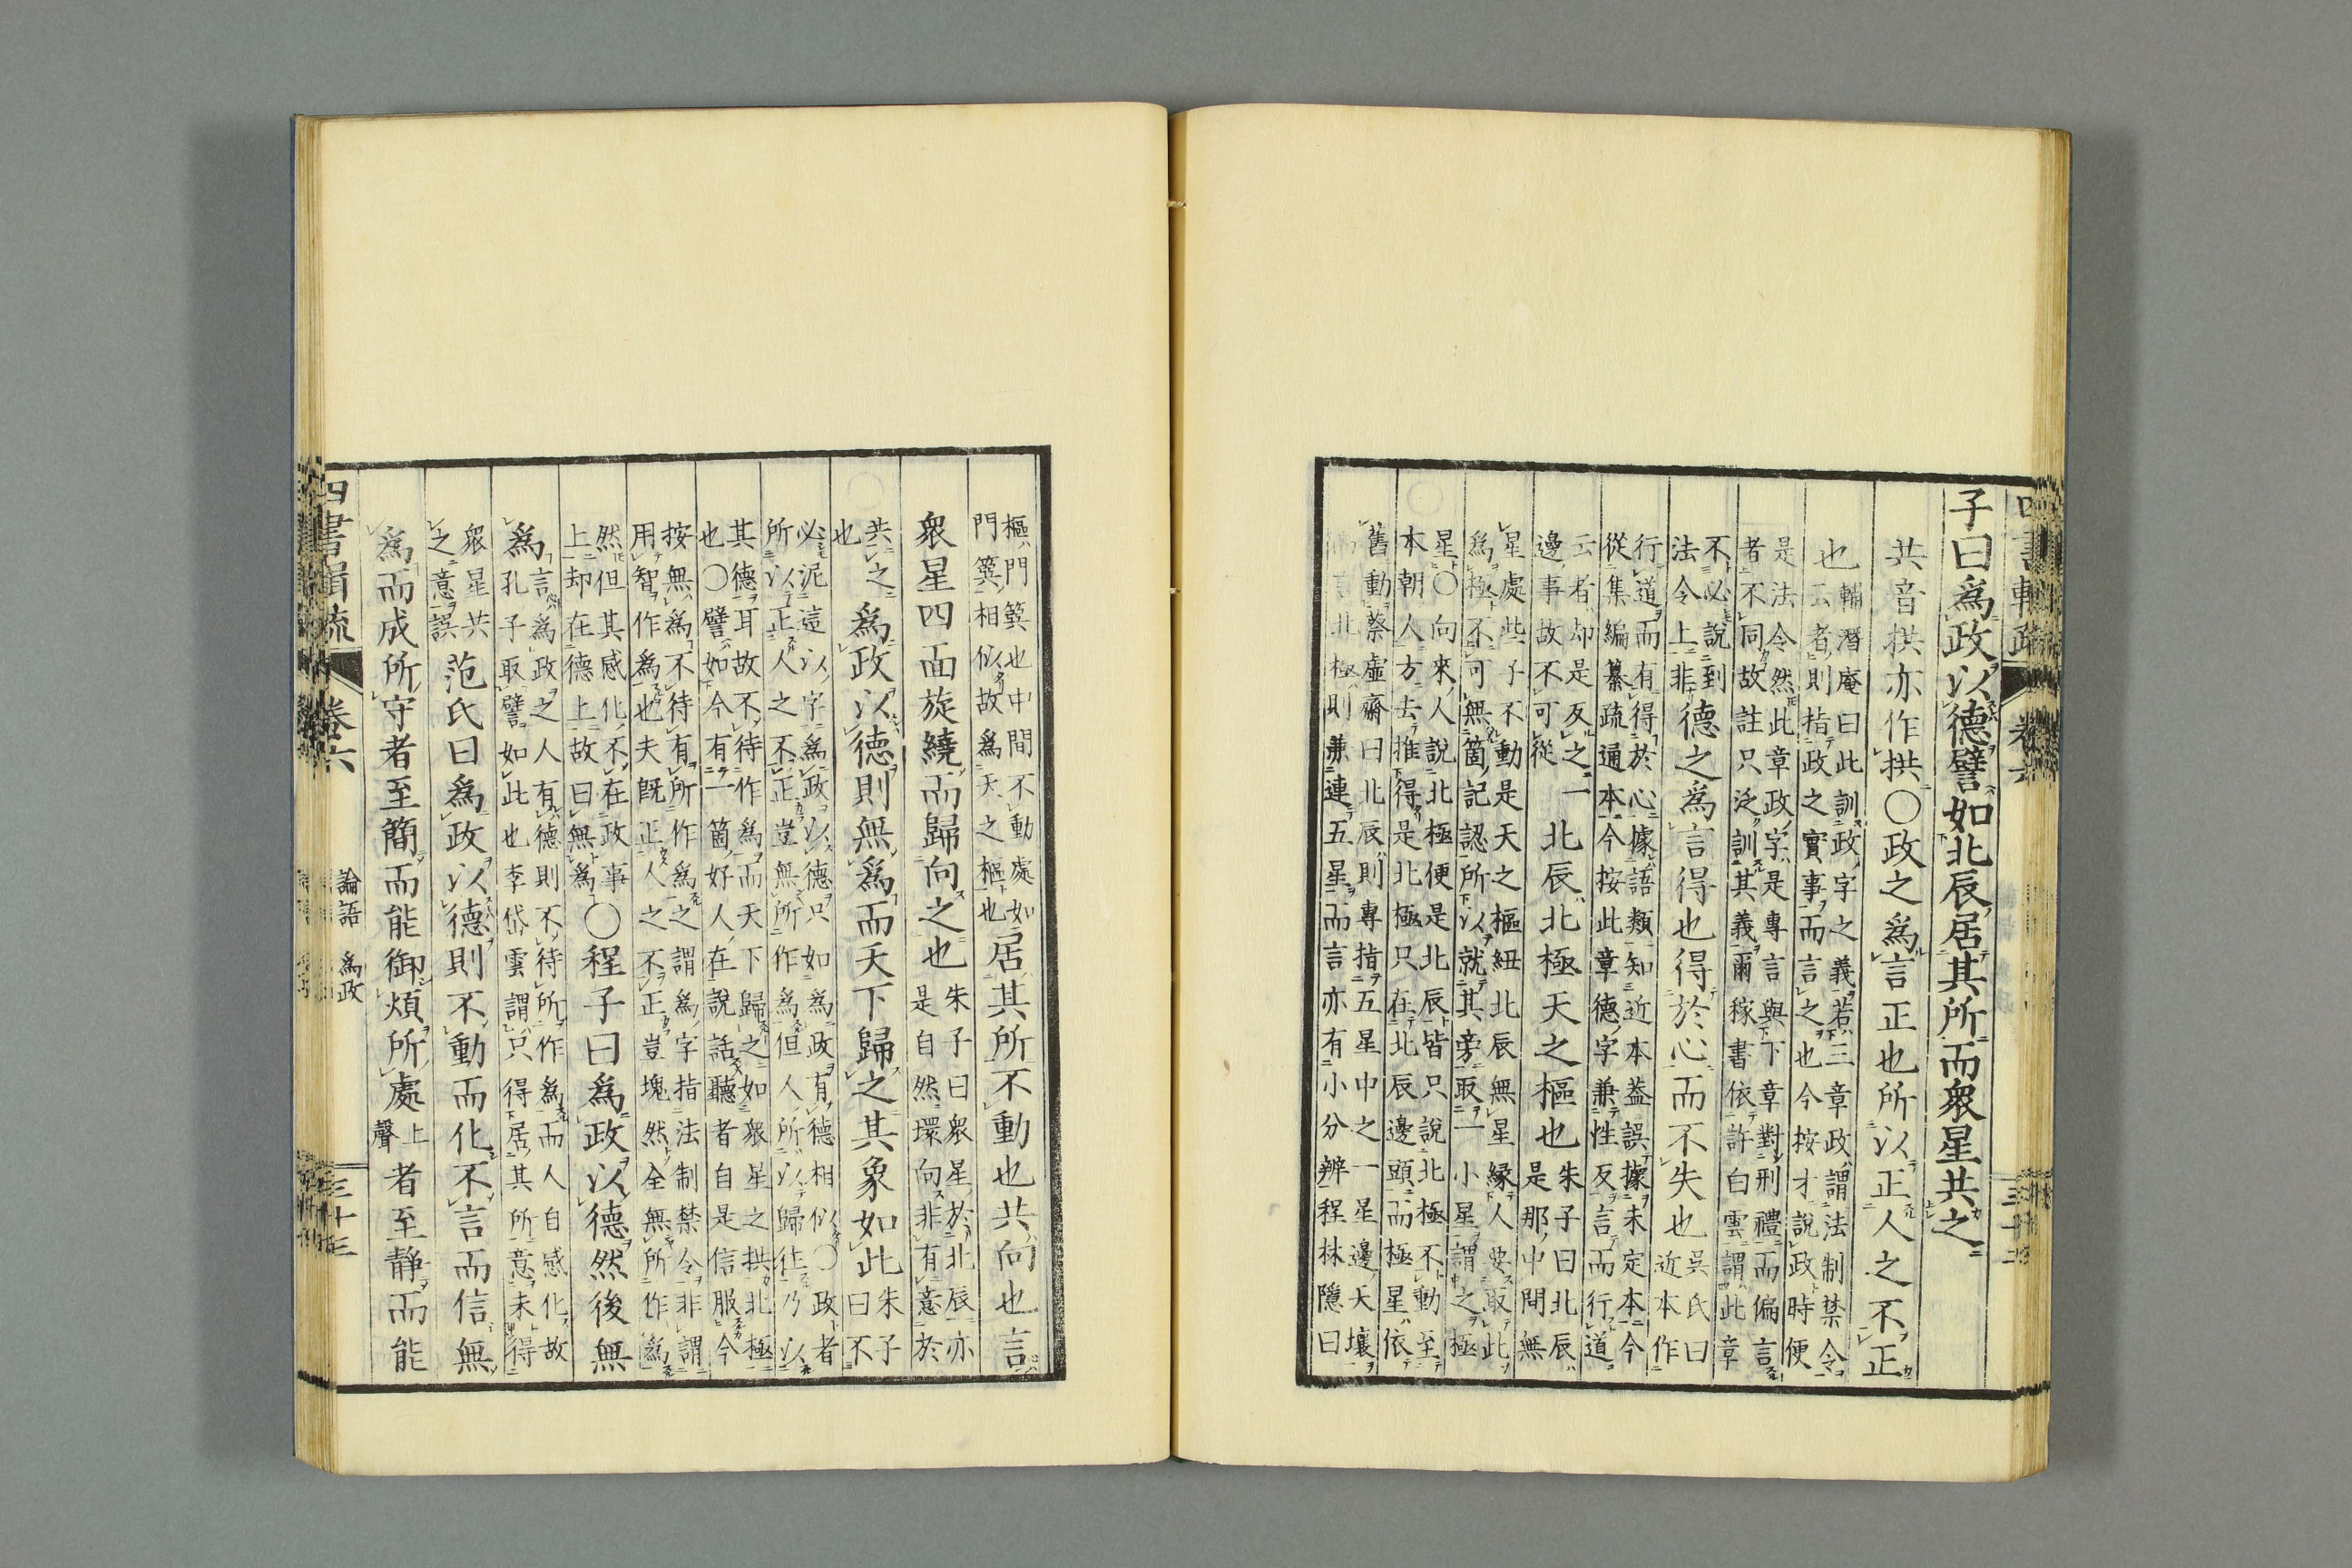 子曰爲政以德譬如北辰居其所而衆星共之
共音拱亦作拱○政之爲言正也所以正人之不正
也
輔潛庵曰此訓政字之義若三章政謂法制禁令
云者則指政之實事而言之也今按才說政時便
是法令然此章政字是專言與下章對刑禮而偏言
者不同故註只泛訓其義爾稼書依許白雲謂此章
不必說到
法令上非
德之爲言得也得於心而不失也
吳氏曰
近本作
行道而有得於心據語類知近本蓋誤據未定本今
從集編纂疏通本今按此章德字兼性反言而行道
云者却是反之一
邊事故不可從
北辰北極天之樞也
朱子曰北辰
是那中間無
星處些子不動是天之樞紐北辰無星緣人要取此
爲極不可無箇記認所以就其旁取一小星謂之極
星○向來人說北極便是北辰皆只說北極不動至
本朝人方去推得是北極只在北辰邊頭而極星依
舊動蔡虛齋曰北辰則專指五星中之一星邊天壤
言北極則兼連五星而言亦有小分辨程林隱曰
四書輯疏 卷六
樞門簨也中間不動處如
門簨相似故爲天之樞也
居其所不動也共向也言
衆星四面旋繞而歸向之也
朱子曰衆星於北辰亦
是自然環向非有意於
共之
也
爲政以德則無爲而天下歸之其象如此
朱子
曰不
必泥這以字爲政以德只如爲政有德相似○政者
所以正人之不正豈無所作爲但人所以歸往乃以
其德耳故不待作爲而天下歸之如衆星之拱北極
也○譬如今有一箇好人在說話聽者自是信服今
按無爲不待有所作爲之謂爲字指法制禁令非謂
用智作爲也夫旣正人之不正豈塊然全無所作爲
然但其感化不在政事
上却在德上故曰無爲
○程子曰爲政以德然後無
爲
言爲政之人有德則不待所作爲而人自感化故
孔子取譬如此也李岱雲謂只得居其所意未得
衆星共
之意誤
范氏曰爲政以德則不動而化不言而信無
爲而成所守者至簡而能御煩所處
上
聲
者至靜而能
四書輯疏 卷六 論語 爲政 三十三